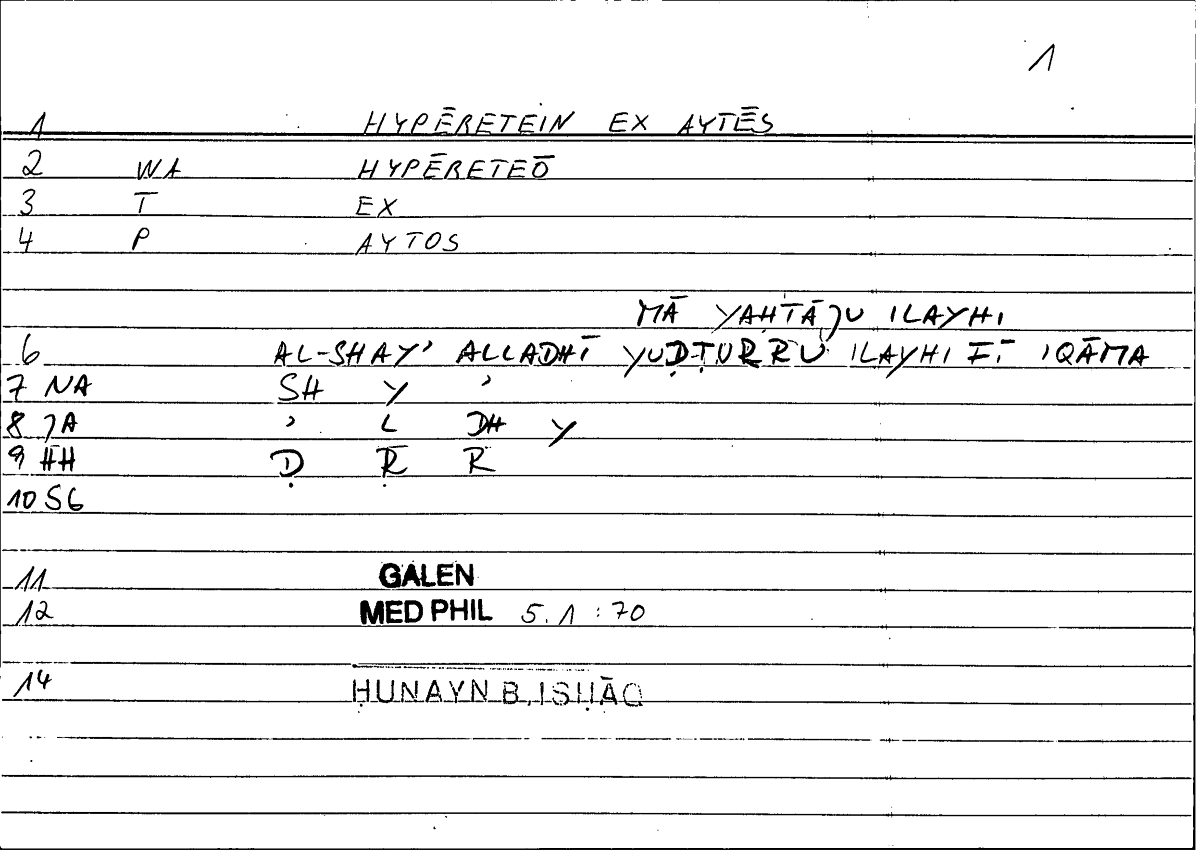 1
1 HYPĒRETEIN EX AYTĒS
2 WA HYPĒRETEŌ
3 T EX
4 P AYTOS
MĀ YAḤTĀJU ILAYHI
6 AL-SHAY' ALLADHĪ YUḌṬURRU ILAYHI FĪ IQĀMA
7 NA SH Y '
8 JA ' L DH Y
9 HH Ḍ R R
10 SG
11 GALEN
12 MED PHIL 5.1:70
14 ḤUNAYN B. ISḤĀQ